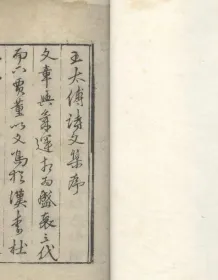 王太傅詩文集序
文章與氣運相為盛衰三代
而下賈董以文鳴於漢李杜